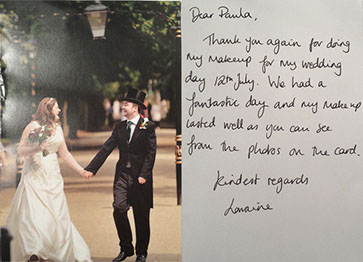 Dear Paula,
Thank you again for doing
my makeup for my wedding
day 12th July. We had a
fantastic day and my makeup
lasted well as you can see
from the photos on the card.
Kindest regards
Lorraine